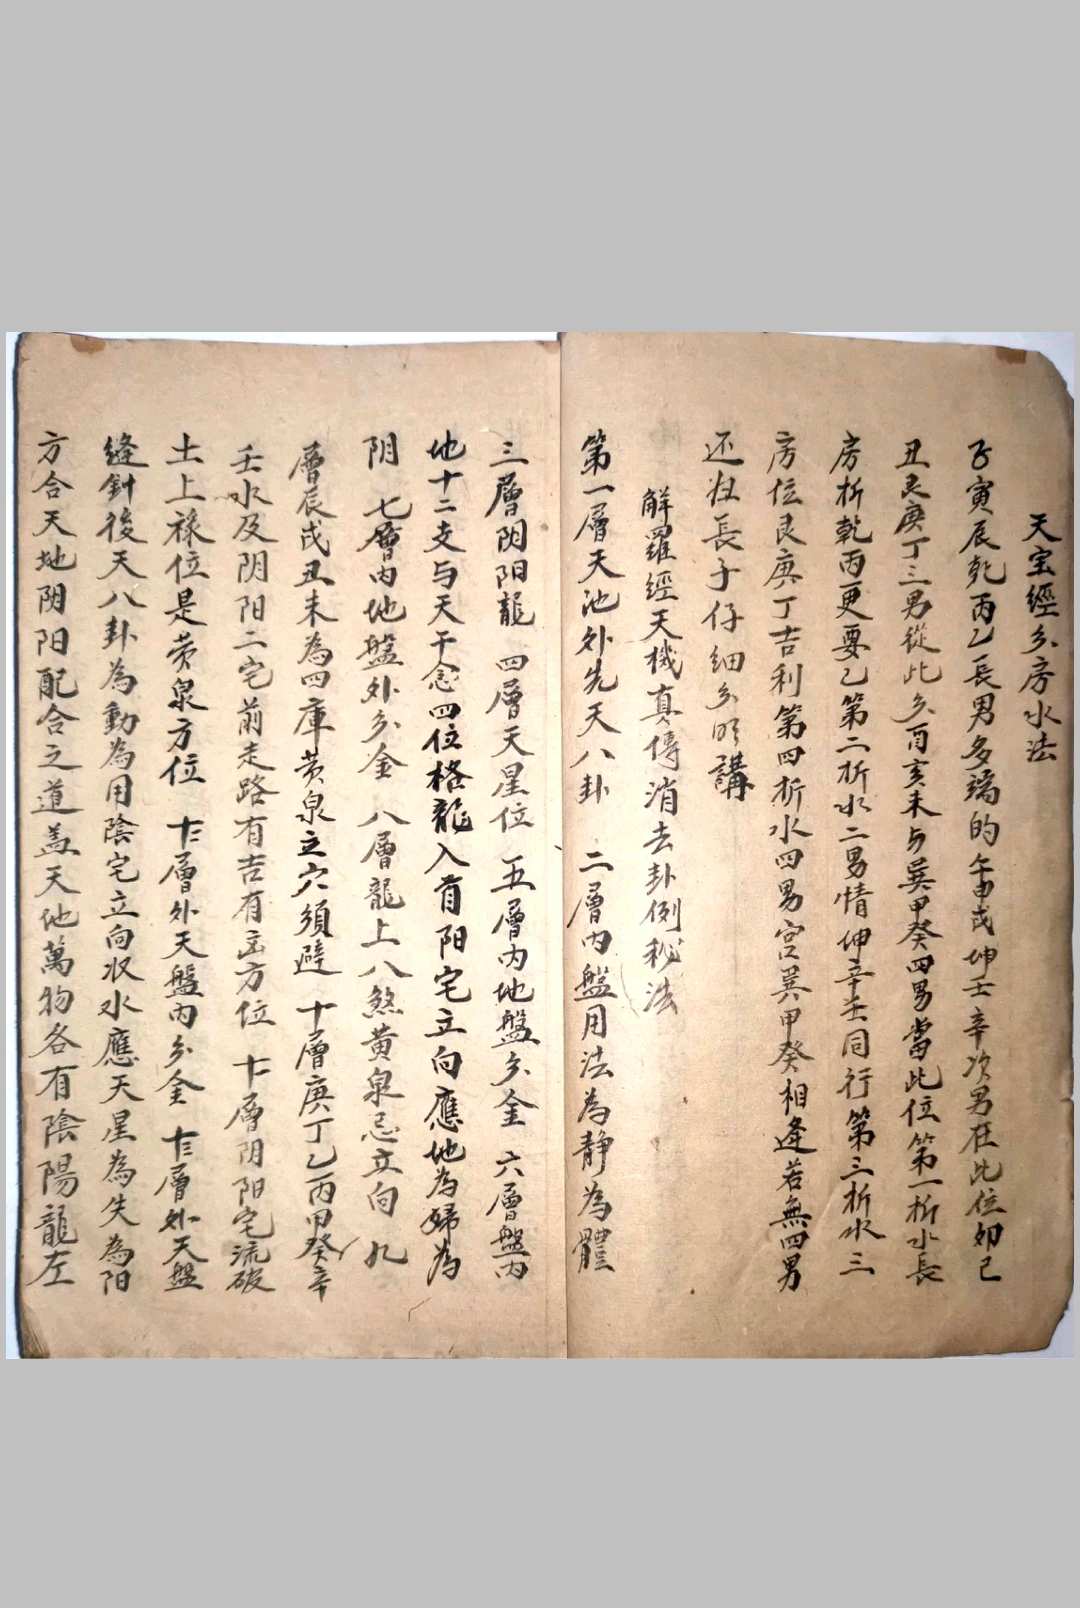 天宝經分房水法
子寅辰乾丙乙長男多端的午申戌坤壬辛次男在此位卯巳
丑艮庚丁三男從此分酉亥未与巽甲癸四男當此位第一折水長
房折乾丙更要乙第二折水二男情坤辛壬同行第三折水三
房位艮庚丁吉利第四折水四男宫巽甲癸相逢若無四男
还归長子仔細分明講
解羅經天機真傳消去卦例秘法
第一層天池外先天八卦 二層内盤用法為静為體
三層阴阳龍 四層天星位 五層内地盤分金 六層盤内
地十二支与天干念四位格龍入首阳宅立向應地為婦為
阴 七層内地盤外分金 八層龍上八煞黄泉忌立向 九
層辰戌丑未為四庫黄泉立穴須避 十層庚丁乙丙甲癸辛
壬水及阴阳二宅前走路有吉有凶方位 十一層阴阳宅流破
土上禄位是黄泉方位 十二層外天盤内分金 十三層外天盤
縫針後天八卦為動為用陰宅立向収水應天星為夫為阳
方合天地阴阳配合之道盖天地萬物各有陰陽龍左